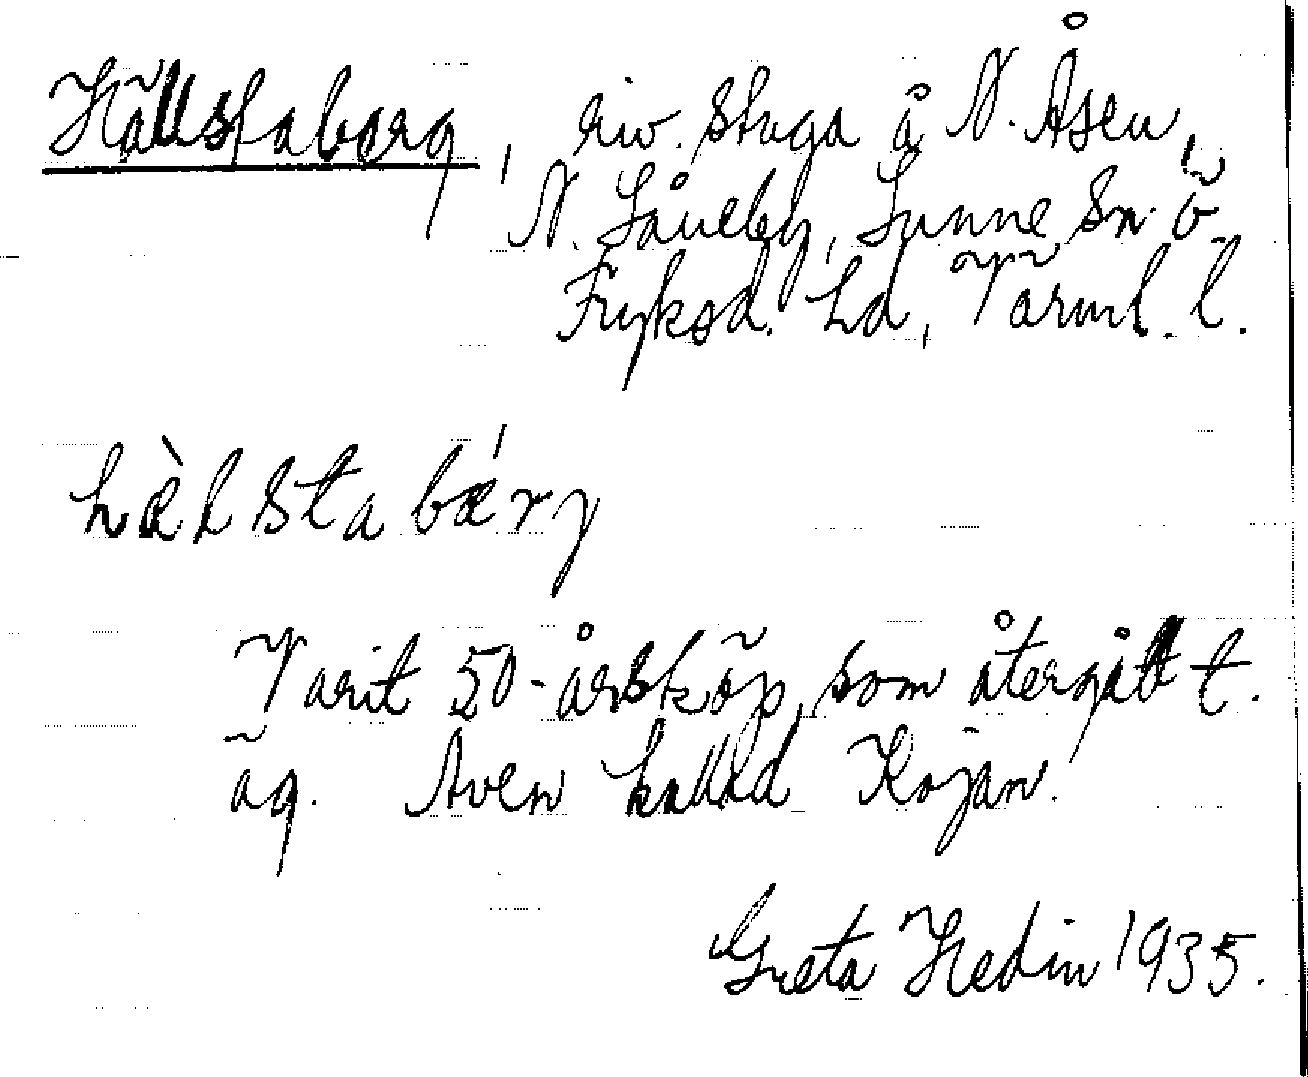 Hällstaberg, riv. stuga å N. Åsen,
N. Låneby, Sunne sn. ö
Fryksd. hd, Värml. l.
hæ̀lstabǽry
Varit 50-årsköp, som återgått t.
äg. Även kallad Kojan.
Greta Hedin 1935.